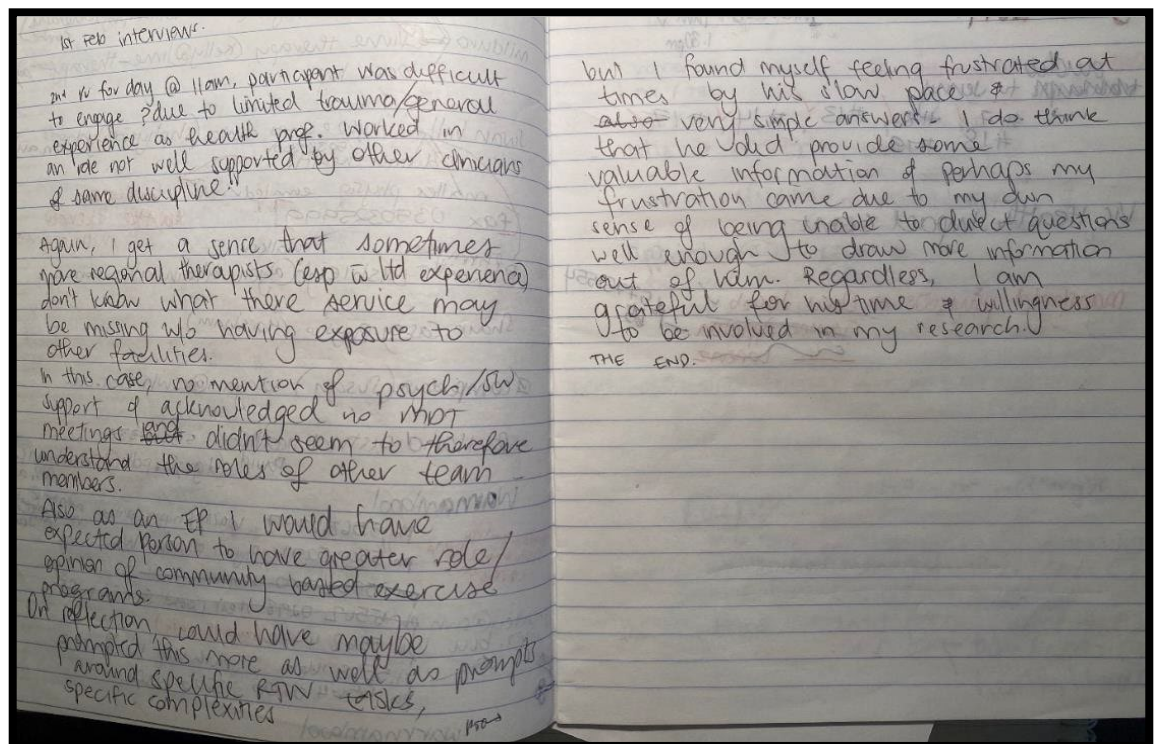 1st Feb interviews.
2nd iv for day @ 11am, participant was difficult
to engage ? due to limited trauma/general
experience as health prof. Worked in
an role not well supported by other clinicians
of same discipline.
Again, I get a sense that sometimes
more regional therapists (esp w ltd experience)
don't know what there service may
be missing w/o having exposure to
other facilities.
In this case, no mention of psych/SW
support & acknowledged no MDT
meetings didn't seem to therefore
understand the roles of other team
members.
Also as an EP I would have
expected person to have greater role/
opinion of community based exercise
programs.
On reflection, could have maybe
prompted this more as well as prompts
around specific RTW tasks,
specific complexities
but I found myself feeling frustrated at
times by his slow pace &
also very simple answers. I do think
that he did provide some
valuable information & perhaps my
frustration came due to my own
sense of being unable to direct questions
well enough to draw more information
out of him. Regardless, I am
grateful for his time & willingness
to be involved in my research.
THE END.